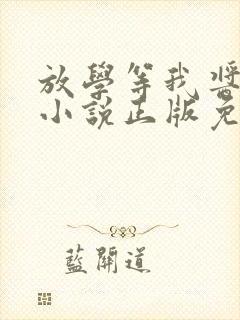 放學等我醬
小說正版免
藍開道